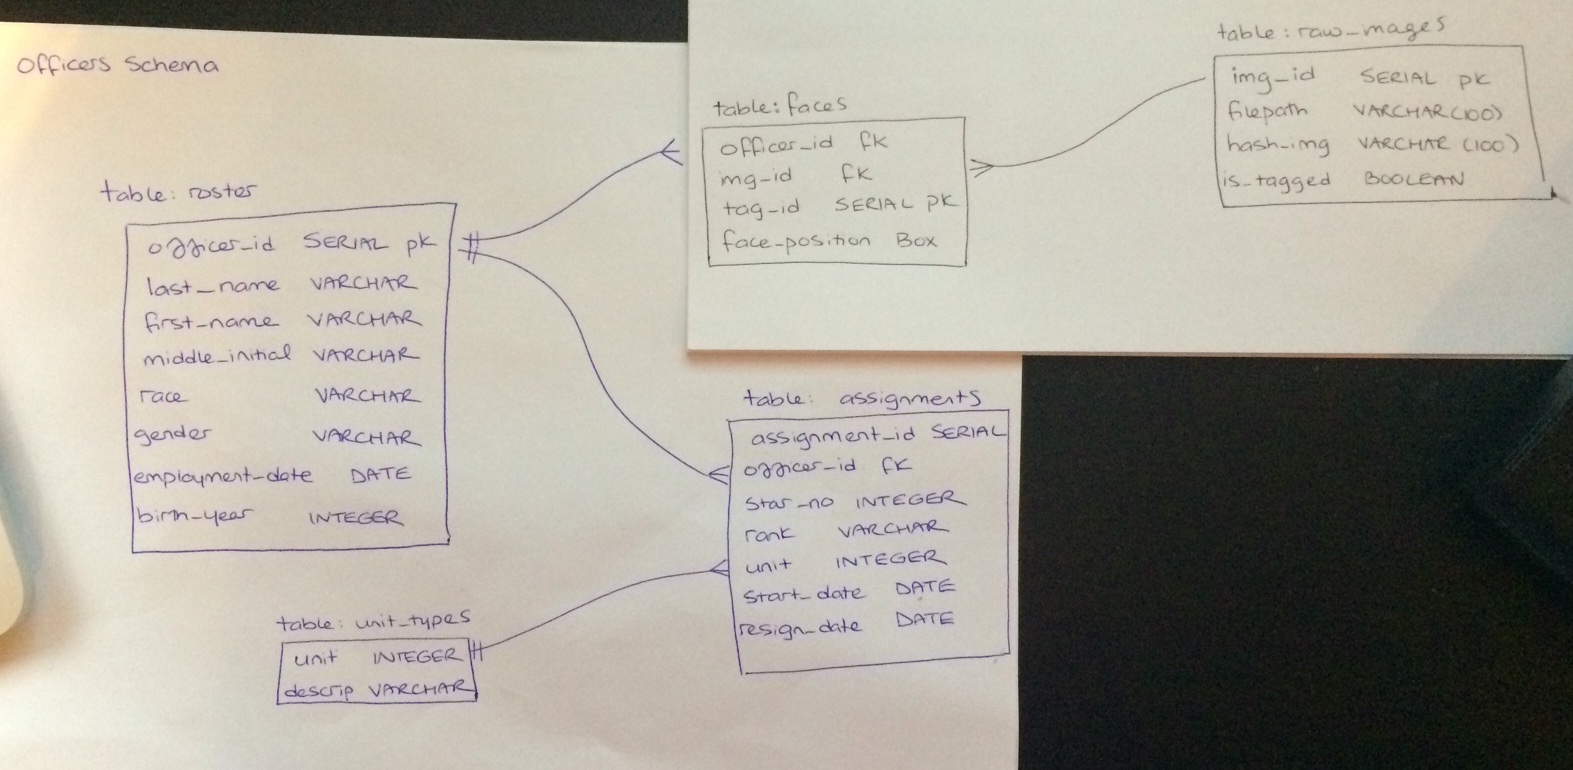 Officers Schema
table: roster
officer_id SERIAL pk
last_name VARCHAR
first_name VARCHAR
middle_initial VARCHAR
race VARCHAR
gender VARCHAR
employment_date DATE
birth_year INTEGER
table: unit_types
unit INTEGER
descrip VARCHAR
table: faces
officer_id fk
img_id fk
tag_id SERIAL pk
face_position Box
table: raw_images
img_id SERIAL pk
filepath VARCHAR(100)
hash_img VARCHAR (100)
is_tagged BOOLEAN
table: assignments
assignment_id SERIAL
officer_id fk
star_no INTEGER
rank VARCHAR
unit INTEGER
start_date DATE
resign_date DATE